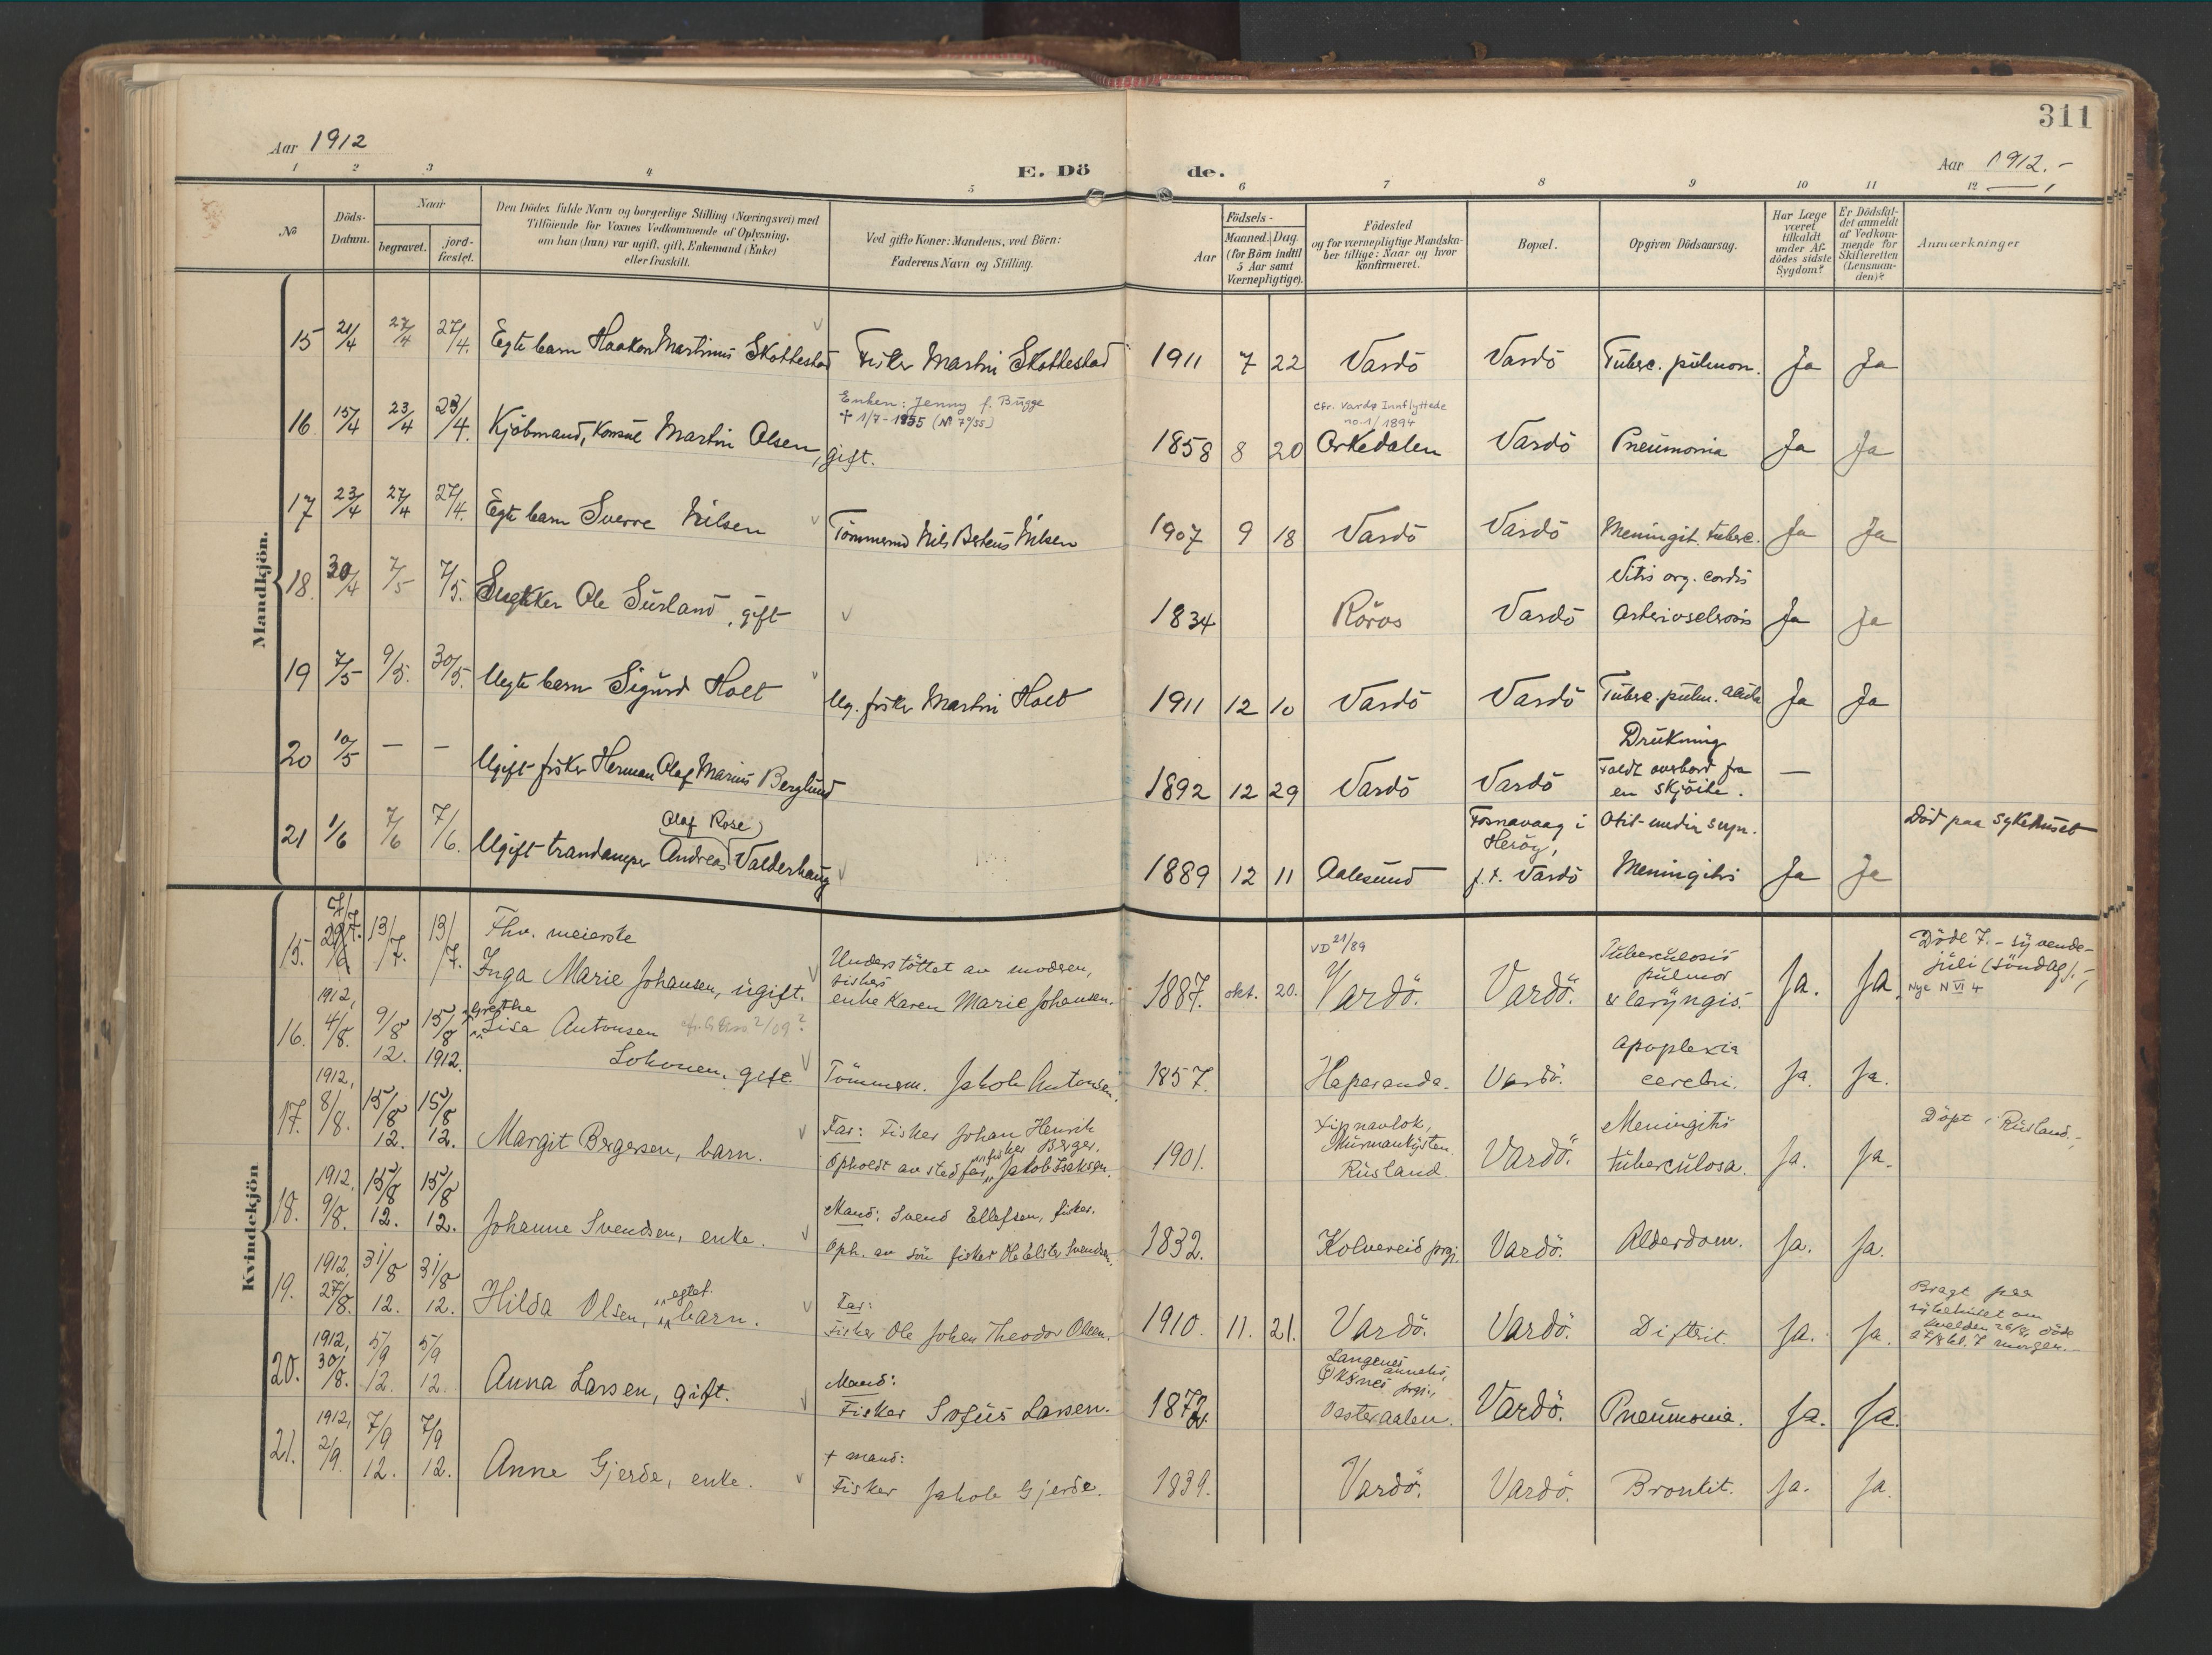 311
Aar 1912
E. Döde.
Aar 1912.-
1 2 3 4 5 6 7 8 9 10 11 12
No
Döds-Datum.
Naar
begravet.
jord-fæstet.
Den Dödes fulde Navn og borgerlige Stilling (Næringsvei) med
Tilföiende for Voxnes Vedkommende af Oplysning,
om han (hun) var ugift, gift, Enkemand (Enke)
eller fraskilt.
Ved gifte Koner: Mandens, ved Börn:
Faderens Navn og Stilling.
Födsels-
Aar
Maaned. Dag
(for Börn indtil
5 Aar samt
Værnepligtige).
Födested
og for værnepligtige Mandska-
ber tillige: Naar og hvor
konfirmeret.
Bopæl.
Opgiven Dödsaarsag.
Har Læge
været
tilkaldt
under Af-
dödes sidste
Sygdom?
Er Dödsfal-
det anmeldt
af Vedkom-
mende for
Skifteretten
(Lensman-
den)?
Anmærkninger
Mandkjön.
15 21/4 27/4 27/4. Egte barn Haakon Martinus Skottestad Fisker Martin Skottestad 1911 7 22 Vardö Vardö Tuberc. pulmon. Ja Ja
Enken: Jenny f. Bugge
+ 1/7-1955 (No 79/55)
cfr. Vardø Innflyttede
no. 1/1894
16. 15/4 23/4 23/4. Kjöbmand, Konsul Martin Olsen, gift. 1858 8 20 Orkedalen Vardö Pneumonia Ja Ja
17 23/4 27/4 27/4. Egte barn Sverre Nilsen Tömmerm. Nils Berteus Nilsen 1907 9 18 Vardö Vardö Meningit. tuberc. Ja Ja
Vitis org. cordis
18. 30/4 7/5 7/5. Snekker Ole Surland, gift 1834 Röros Vardö Arteriosclerosis Ja Ja
19 7/5 9/5. 30/5. Uegte barn Sigurd Holt Ug. fisker Martin Holt 1911 12 10 Vardö Vardö Tuberc. pulm. acuta Ja Ja
Drukning
20 10/5 — — Ugift fisker Herman Olaf Marius Berglund 1892 12 29 Vardö Vardö Faldt overbord fra
en skjöite. —
Olaf Rose)
Fosnavaag i
Heröy,
Otit-media supp.
Död paa sykehuset
21 1/6 7/6 7/6. Ugift trandamper Andreas Valderhaug 1889 12 11 Aalesund f.t. Vardö Meningitis Ja Ja
Kvindekjön
15. 7/7. 29/6 13/7. 13/7. Fhv. meierske
Inga Marie Johansen, ugift. Understöttet av moderen,
fisker
enke Karen Marie Johansen. 1887. okt. 20. VD 21/89
Vardö. Vardö. Tuberculosis
pulmor
& laryngis. Ja. Ja. Döde 7. - syvende -
juli (söndag).-
Nye N VI 4
1912,
16. 4/8. 9/8 12. 15/8 1912. Grethe
Lisa Antonsen
Lokonen, gift. Tömmerm. Jakob Antonsen. 1857. Haparanda. Vardö. Apoplexia
cerebri. Ja. Ja.
1912,
17. 8/8. 15/8 12. 15/8 12. Margit Bergersen, barn. Far: Fisker Johan Henrik
Berger.
Opholdt av stedfar, fisker Jakob Isaksen. 1901. Zipnavlok,
Murmankysten.
Rusland. Vardö. Meningitis
tuberculosa. Ja. Ja. Döpt i Rusland.-
1912,
18. 9/8. 15/8 12. 15/8 12. Johanne Svendsen, enke. Mand: Svend Ellefsen, fisker.
Oph. av sön fisker Ole Elster Svendsen. 1832. Kolvereid prgj. Vardö. Alderdom. Ja. Ja.
1912,
19. 27/8. 31/8 12. 31/8 12. Hilda Olsen, egtef. barn. Far:
Fisker Ole Johan Theodor Olsen. 1910. 11. 21. Vardö. Vardö. Diftrit. Ja. Ja. Bragt paa
sykehuset om
kvelden 26/8, döde
27/8 kl. 7 morgen.-
1912,
20. 30/8. 5/9 12. 5/9 12. Anna Larsen, gift. Mand:
Fisker Sofus Larsen. 1872. Langenes
anneks,
Öksnes prgj.,
Vesteraalen. Vardö. Pneumonie. Ja. Ja.
1912,
21. 2/9. 7/9 12. 7/9 12. Anne Gjerde, enke. + Mand:
Fisker Jakob Gjerde. 1839. Vardö. Vardö. Bronkit. Ja. Ja.